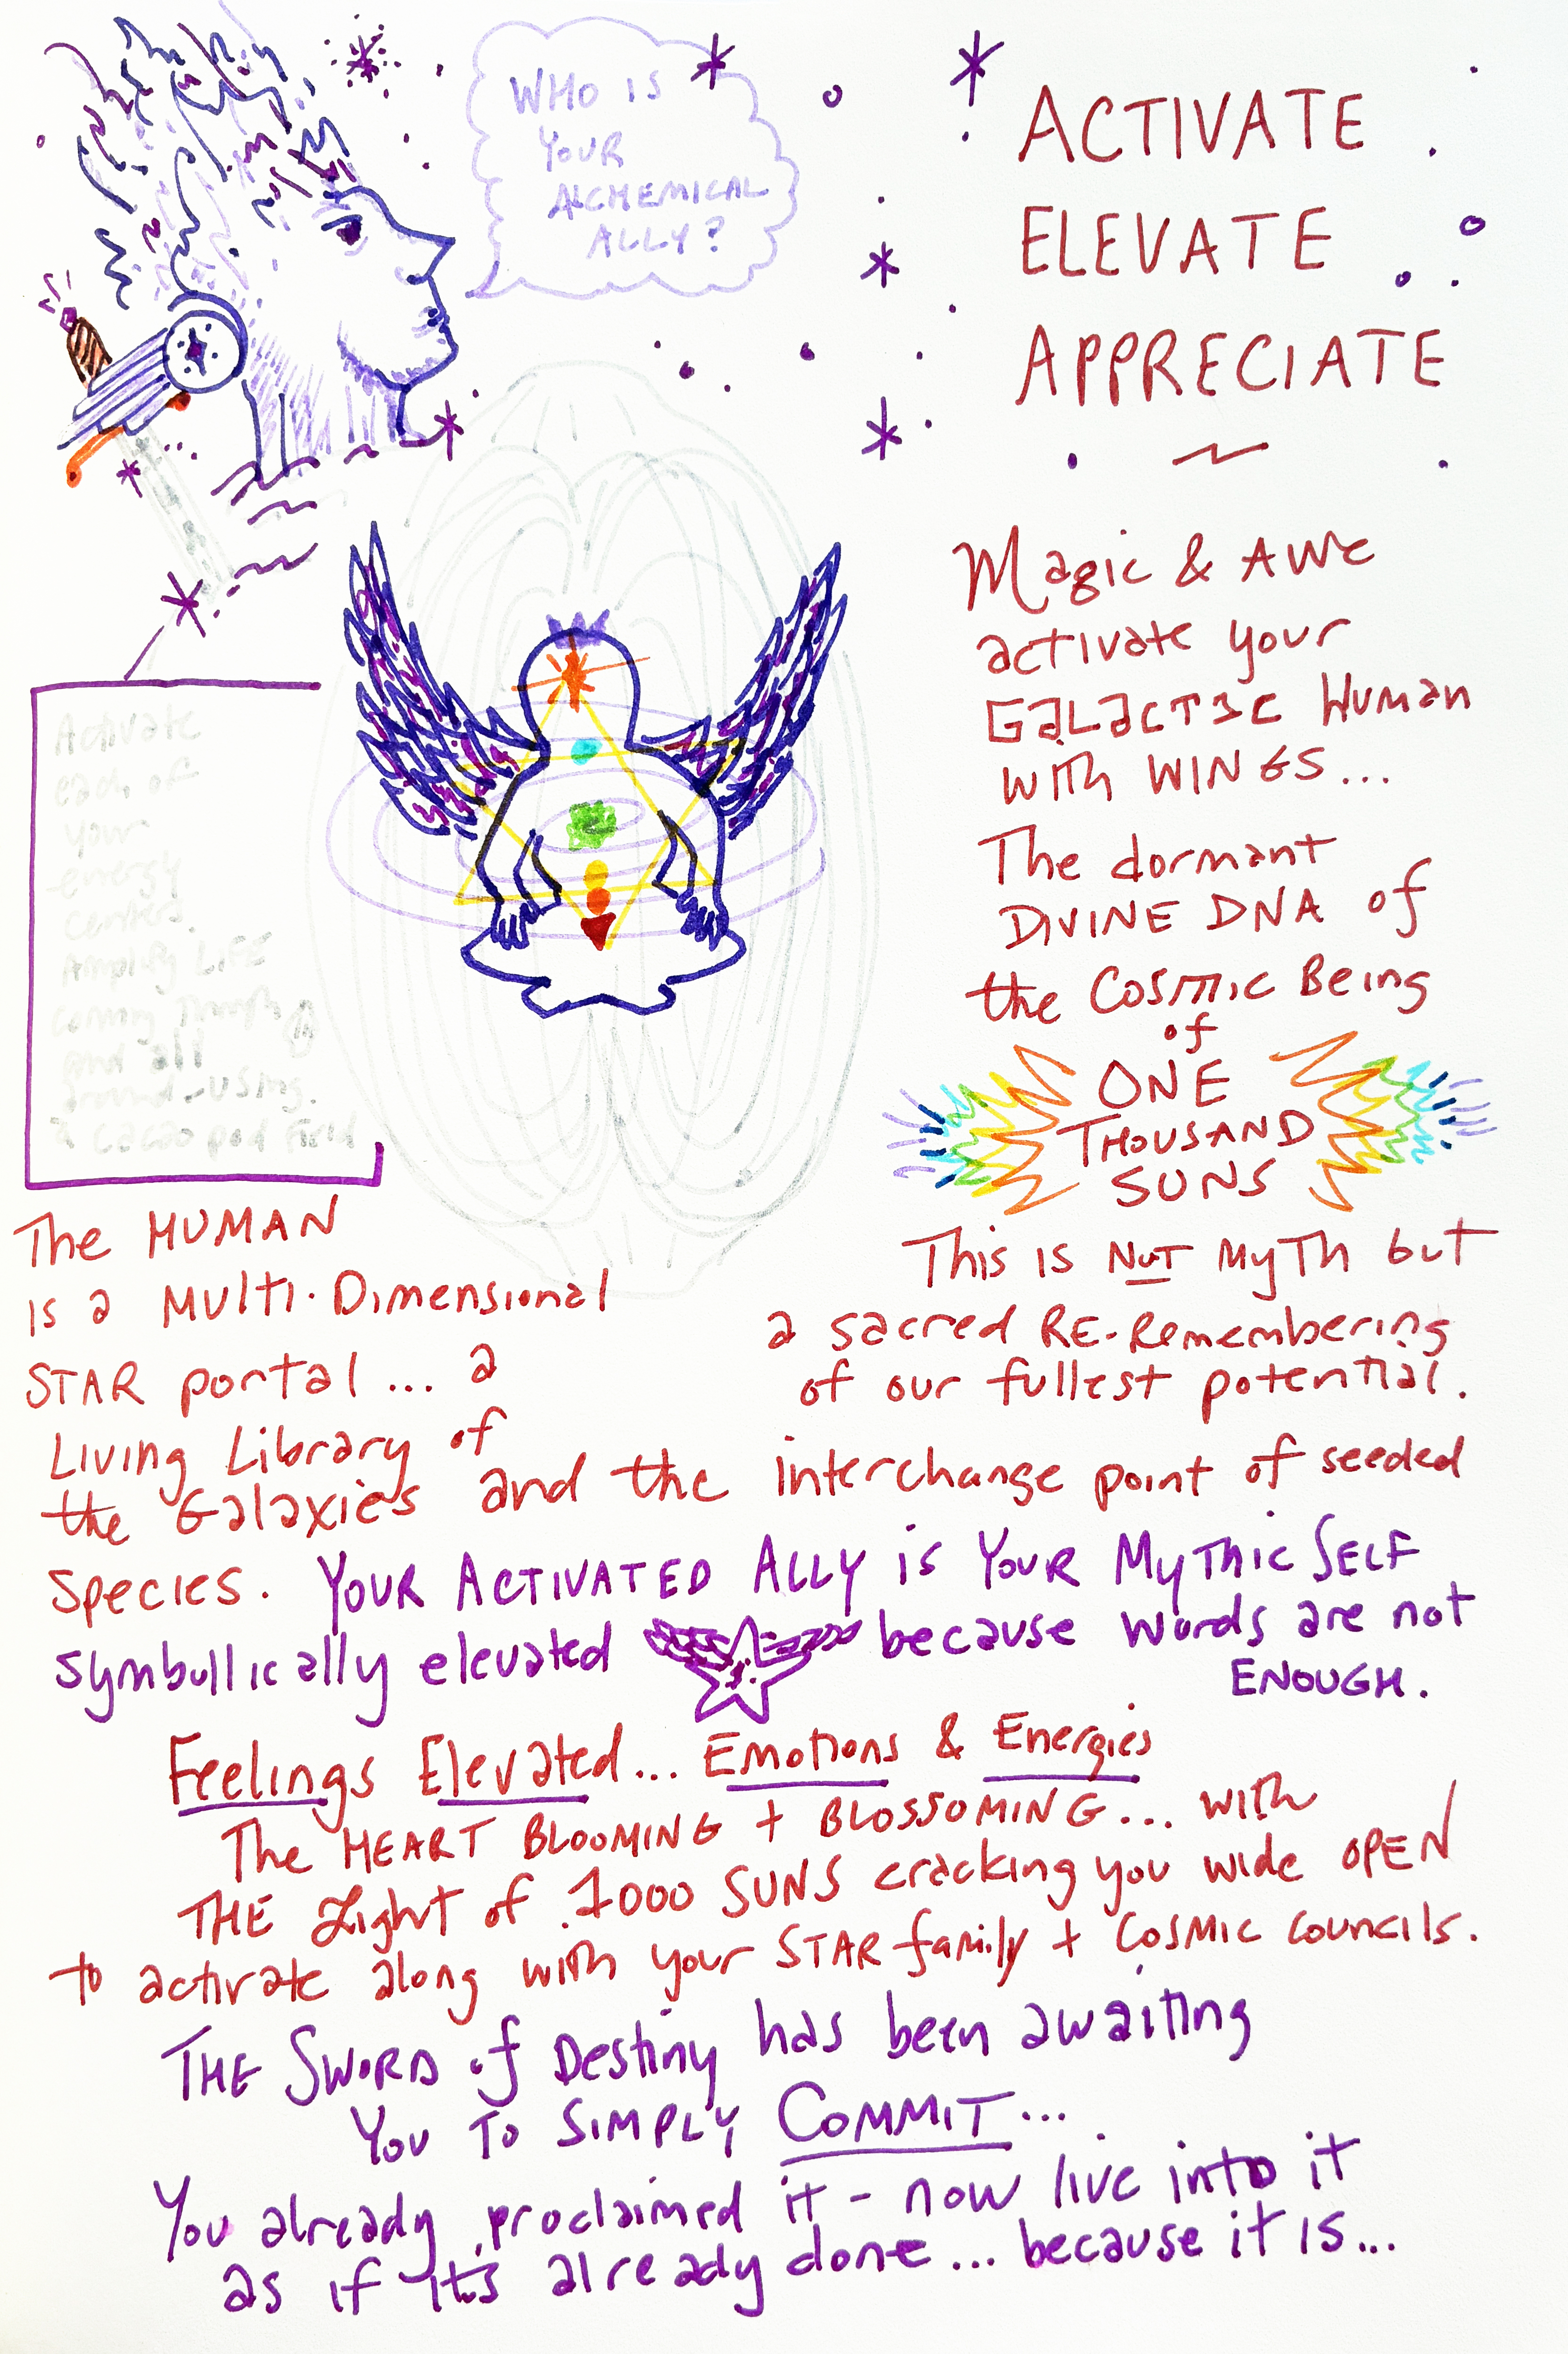 WHO IS
YOUR
ALCHEMICAL
ALLY?
ACTIVATE
ELEVATE
APPRECIATE
Magic & AWE
activate your
GALACTIC Human
with WINGS...
The dormant
DIVINE DNA of
the COSMIC BEING
of
ONE
THOUSAND
SUNS
This is NOT MYTH but
a sacred RE-Remembering
of our fullest potential.
Activate
each of
your
energy
centers.
Amplify LIFE
coming through
and all
around - using
a cacao pod field
The HUMAN
is a Multi-Dimensional
STAR portal... a
Living Library of
the Galaxies and the interchange point of seeded
species. YOUR ACTIVATED ALLY is YOUR MYTHIC SELF
symbollically elevated because words are not
ENOUGH.
Feelings Elevated... Emotions & Energies
The HEART BLOOMING + BLOSSOMING... with
THE Light of 1000 SUNS cracking you wide OPEN
to activate along with your STAR family + COSMIC COUNCILS.
THE SWORD of Destiny has been awaiting
YOU TO SIMPLY COMMIT...
You already proclaimed it - now live into it
as if it's already done... because it is...